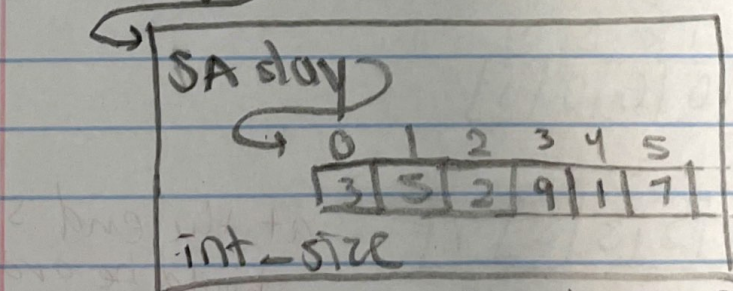 SA slay
0 1 2 3 4 5
3 5 2 9 1 7
int_size